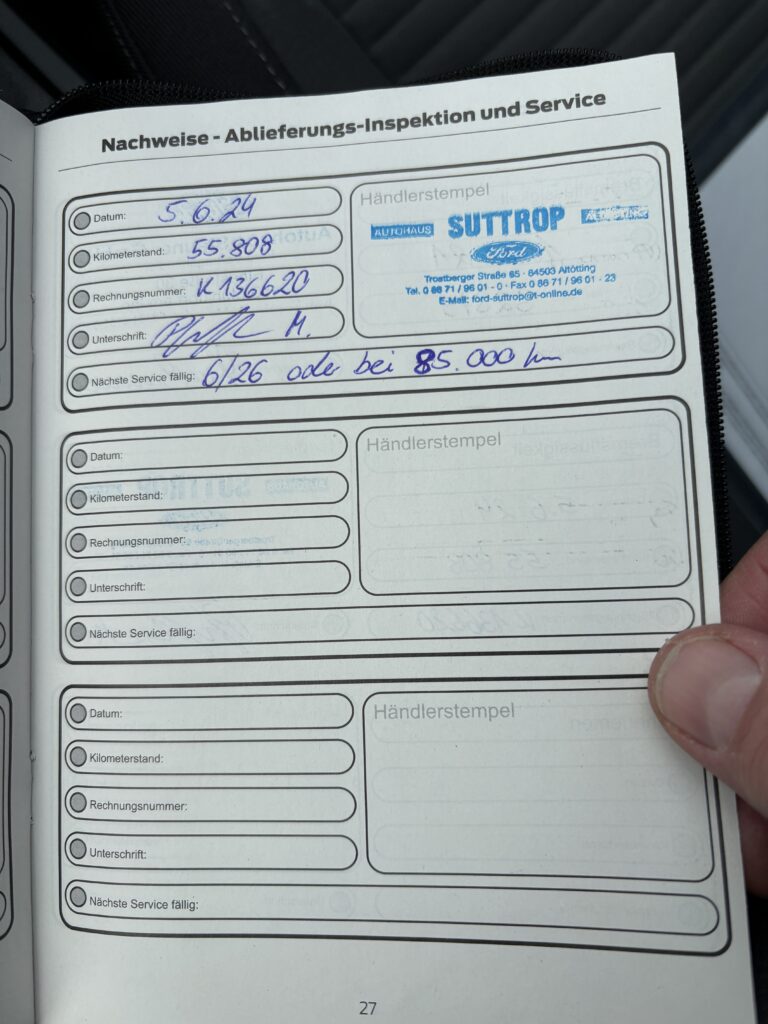 Nachweise - Ablieferungs-Inspektion und Service
Datum: 5.6.24
Kilometerstand: 55.808
Rechnungsnummer: K 136620
Unterschrift: M.
Nächste Service fällig: 6/26 oder bei 85.000 km
Händlerstempel
AUTOHAUS SUTTROP ALTÖTTING
Ford
Trostberger Straße 65 · 84503 Altötting
Tel. 0 86 71 / 96 01 - 0 · Fax 0 86 71 / 96 01 - 23
E-Mail: ford-suttrop@t-online.de
Datum:
Kilometerstand:
Rechnungsnummer:
Unterschrift:
Nächste Service fällig:
Händlerstempel
Datum:
Kilometerstand:
Rechnungsnummer:
Unterschrift:
Nächste Service fällig:
Händlerstempel
27